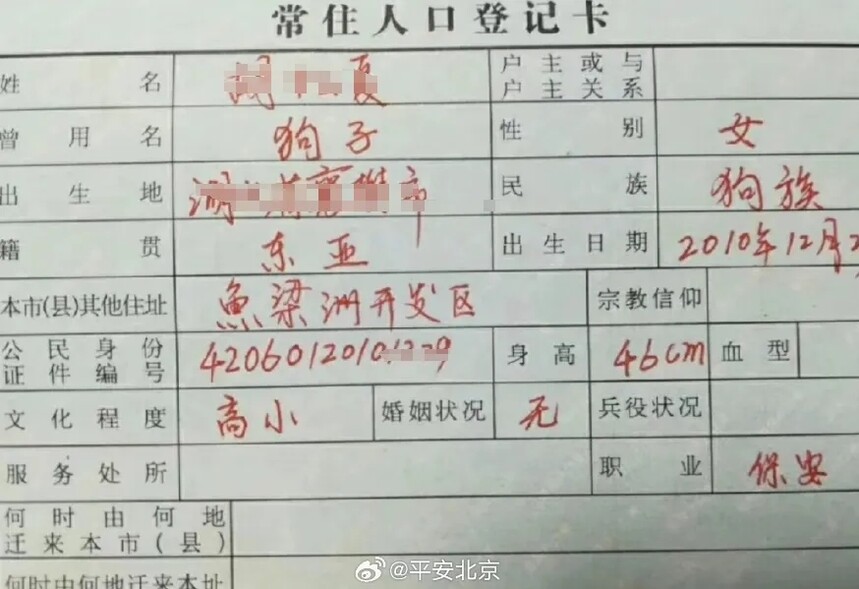 常住人口登记卡
姓名 夏 户主或与户主关系
曾用名 狗子 性别 女
出生地 市 民族 狗族
籍贯 东亚 出生日期 2010年12月2
本市(县)其他住址 鱼梁洲开发区 宗教信仰
公民身份证件编号 4206012010 身高 46cm 血型
文化程度 高小 婚姻状况 无 兵役状况
服务处所 职业 保安
何时由何地迁来本市(县)
何时由何地迁来本址
@平安北京